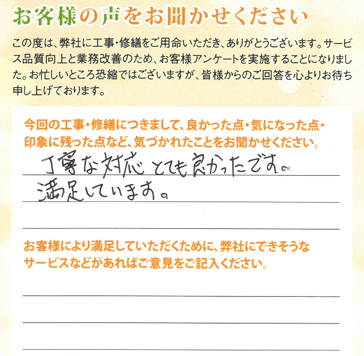 お客様の声をお聞かせください
この度は、弊社に工事・修繕をご用命いただき、ありがとうございます。サービ
ス品質向上と業務改善のため、お客様アンケートを実施することになりまし
た。お忙しいところ恐縮ではございますが、皆様からのご回答を心よりお待ち
申し上げております。
今回の工事・修繕につきまして、良かった点・気になった点・
印象に残った点など、気づかれたことをお聞かせください。
丁寧な対応とても良かったです。
満足しています。
お客様により満足していただくために、弊社にできそうな
サービスなどがあればご意見をご記入ください。